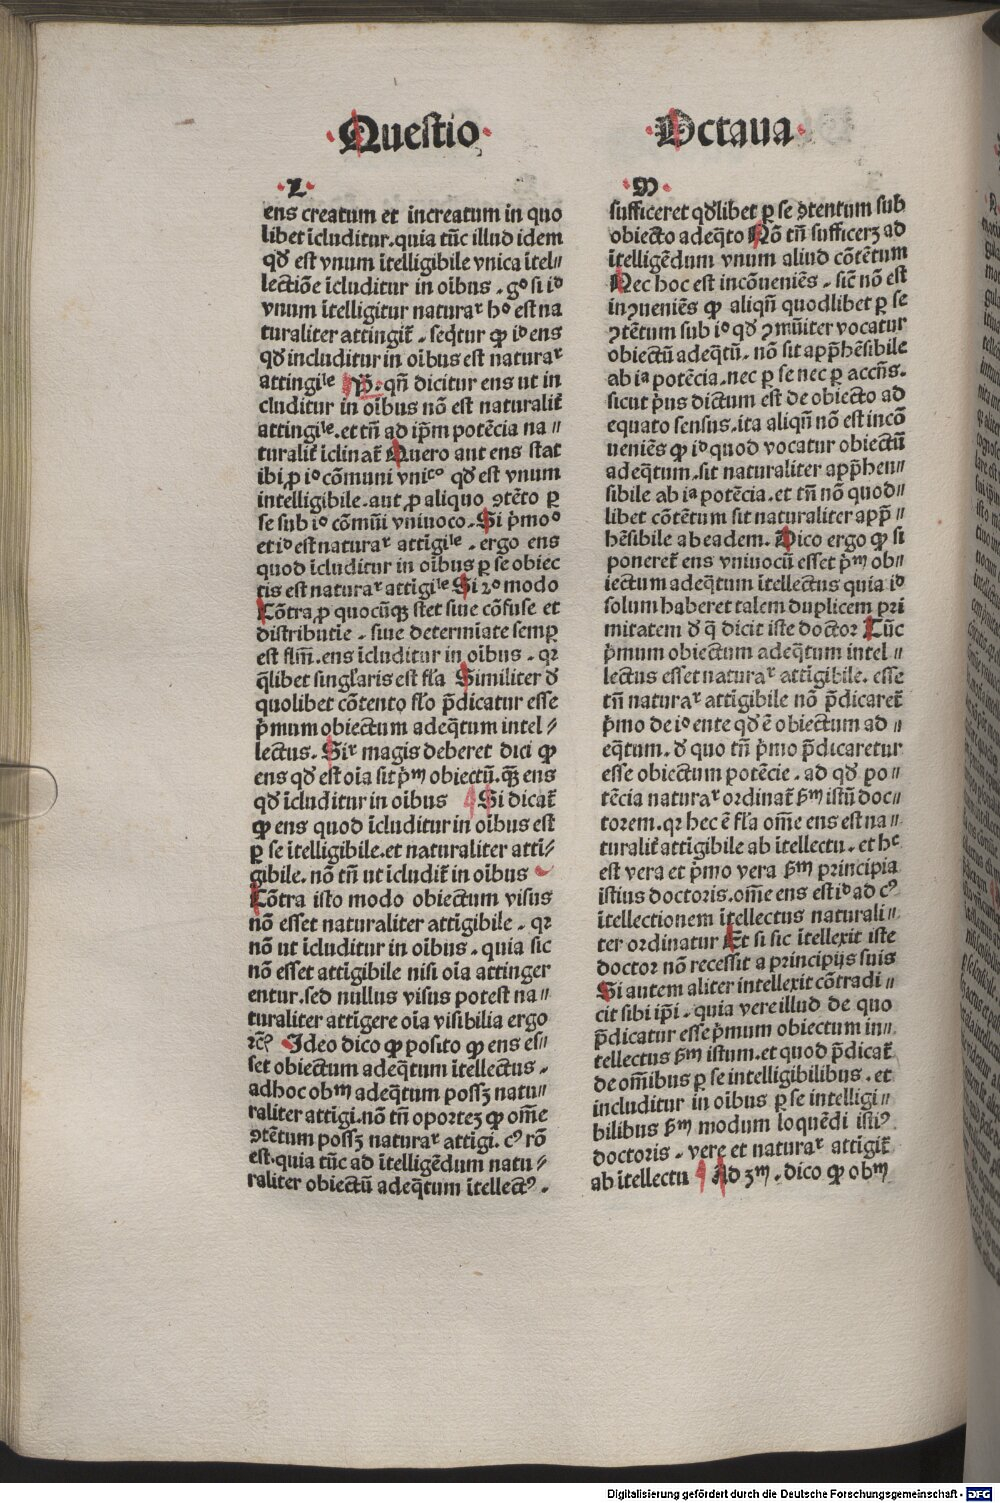 Questio
Octaua
L
ens creatum et increatum in quo
libet īcluditur. quia tūc illud idem
qđ est vnum ītelligibile vnica ītel〃
lectiōe īcluditur in oībus . gͦ si iᵈ
vnum ītelligitur naturaʳ hͦ est na
turaliter attingiť . seq̄tur ꝙ iᵈ ens
qđ includitur in oībus est naturaʳ
attingiˡᵉ qn̄ dicitur ens ut in
cluditur in oībus nō est naturaliť
attingiˡᵉ. et tn̄ ad ip̄m potēcia na〃
turaliť īclinať Quero aut ens stat
ibi ꝓ iͦ cōmuni vnicͦ qđ est vnum
intelligibile. aut ꝓ aliquo ↄtēto ꝑ
se sub iͦ cōmūi vniuoco. Si p̄moͦ
et iᵈ est naturaʳ attīgiˡᵉ . ergo ens
quod īcluditur in oībus ꝑ se obiec
tis est naturaʳ attīgiˡᵉ Si 2ͦ modo
Cōtra ꝓ quocūqꝫ stet siue cōfuse et
distributīe . siue determīate semꝑ
est flm̄. ens īcluditur in oībus . qꝛ
q̄libet singl'aris est fl'a Similiter đ
quolibet cōtento fl'o p̄dicatur esse
p̄mum obiectum adeq̄tum intel〃
lectus. Siʳ magis deberet dici ꝙ
ens qđ est oīa sit p̄ᵐ obiectū. qꝫ ens
qđ īcluditur in oībus Si dicať
ꝙ ens quod īcluditur in oībus est
ꝑ se ītelligibile. et naturaliter attī〃
gibile. nō tn̄ ut īcludiť in oībus
Cōtra isto modo obiectum visus
nō esset naturaliter attīgibile . qꝛ
nō ut īcluditur in oībus . quia sic
nō esset attīgibile nisi oīa attinger
entur. sed nullus visus potest na〃
turaliter attīgere oīa visibilia ergo
ꝛc̄ꝰ Ideo dico ꝙ posito ꝙ ens es〃
set obiectum adeq̄tum ītellectus .
adhoc obᵐ adeq̄tum possꝫ natu〃
raliter attīgi. nō tn̄ oportꝫ ꝙ om̄e
ↄtētum possꝫ naturaʳ attīgi. cꝰ rō
est. quia tūc ad ītelligēdum natu〃
raliter obiectū adeq̄tum ītellectꝰ .
M
sufficeret qđlibet ꝑ se ↄtentum sub
obiecto adeq̄to Nō tn̄ sufficerꝫ ad
ītelligēdum vnum aliud cōtētum
Nec hoc est incōueniēs . sic̄ nō est
inↄueniēs ꝙ aliqn̄ quodlibet ꝑ se
ↄtētum sub iͦ qđ ↄmūiter vocatur
obiectū adeq̄tū . nō sit app̄hēsibile
ab iᵃ potēcia. nec ꝑ se nec ꝑ accn̄s.
sicut p̄us dictum est de obiecto ad
equato sensus. ita aliqn̄ nō est incō
ueniēs ꝙ iᵈ quod vocatur obiectū
adeq̄tum. sit naturaliter app̄hen〃
sibile ab iᵃ potēcia. et tn̄ nō quod〃
libet cōtētum sit naturaliter app̄〃
hēsibile ab eadem. Dico ergo ꝙ si
ponereť ens vniuocū esset p̄ᵐ ob〃
iectum adeq̄tum ītellectus quia iᵈ
solum haberet talem duplicem pri
mitatem đ q̄ dicit iste doctor Tūc
p̄mum obiectum adeq̄tum intel〃
lectus esset naturaʳ attīgibile. esse
tn̄ naturaʳ attīgibile nō p̄dicareť
p̄mo de iͦ ente qđ ē obiectum ad〃
eq̄tum. đ quo tn̄ p̄mo p̄dicaretur
esse obiectum potēcie . ad qđ po〃
tēcia naturaʳ ordinať ẜᵐ istū doc〃
torem. qꝛ hec ē fl'a om̄e ens est na〃
turaliť attīgibile ab ītellectu . et hᶜ
est vera et p̄mo vera ẜᵐ principia
istius doctoris. om̄e ens est iᵈ ad cꝰ
ītellectionem ītellectus naturali〃
ter ordinatur Et si sic ītellexit iste
doctor nō recessit a principijs suis
Si autem aliter intellexit cōtradi〃
cit sibi ip̄i . quia vere illud de quo
p̄dicatur esse p̄mum obiectum in〃
tellectus ẜᵐ istum. et quod p̄dicať
de om̄ibus ꝑ se intelligibilibus . et
includitur in oībus ꝑ se intelligi〃
bilibus ẜᵐ modum loquēdi istiꝰ
doctoris . vere et naturaʳ attīgiť
ab ītellectu Ad 3ᵐ . dico ꝙ obᵐ
Digitalisierung gefördert durch die Deutsche Forschungsgemeinschaft - DFG